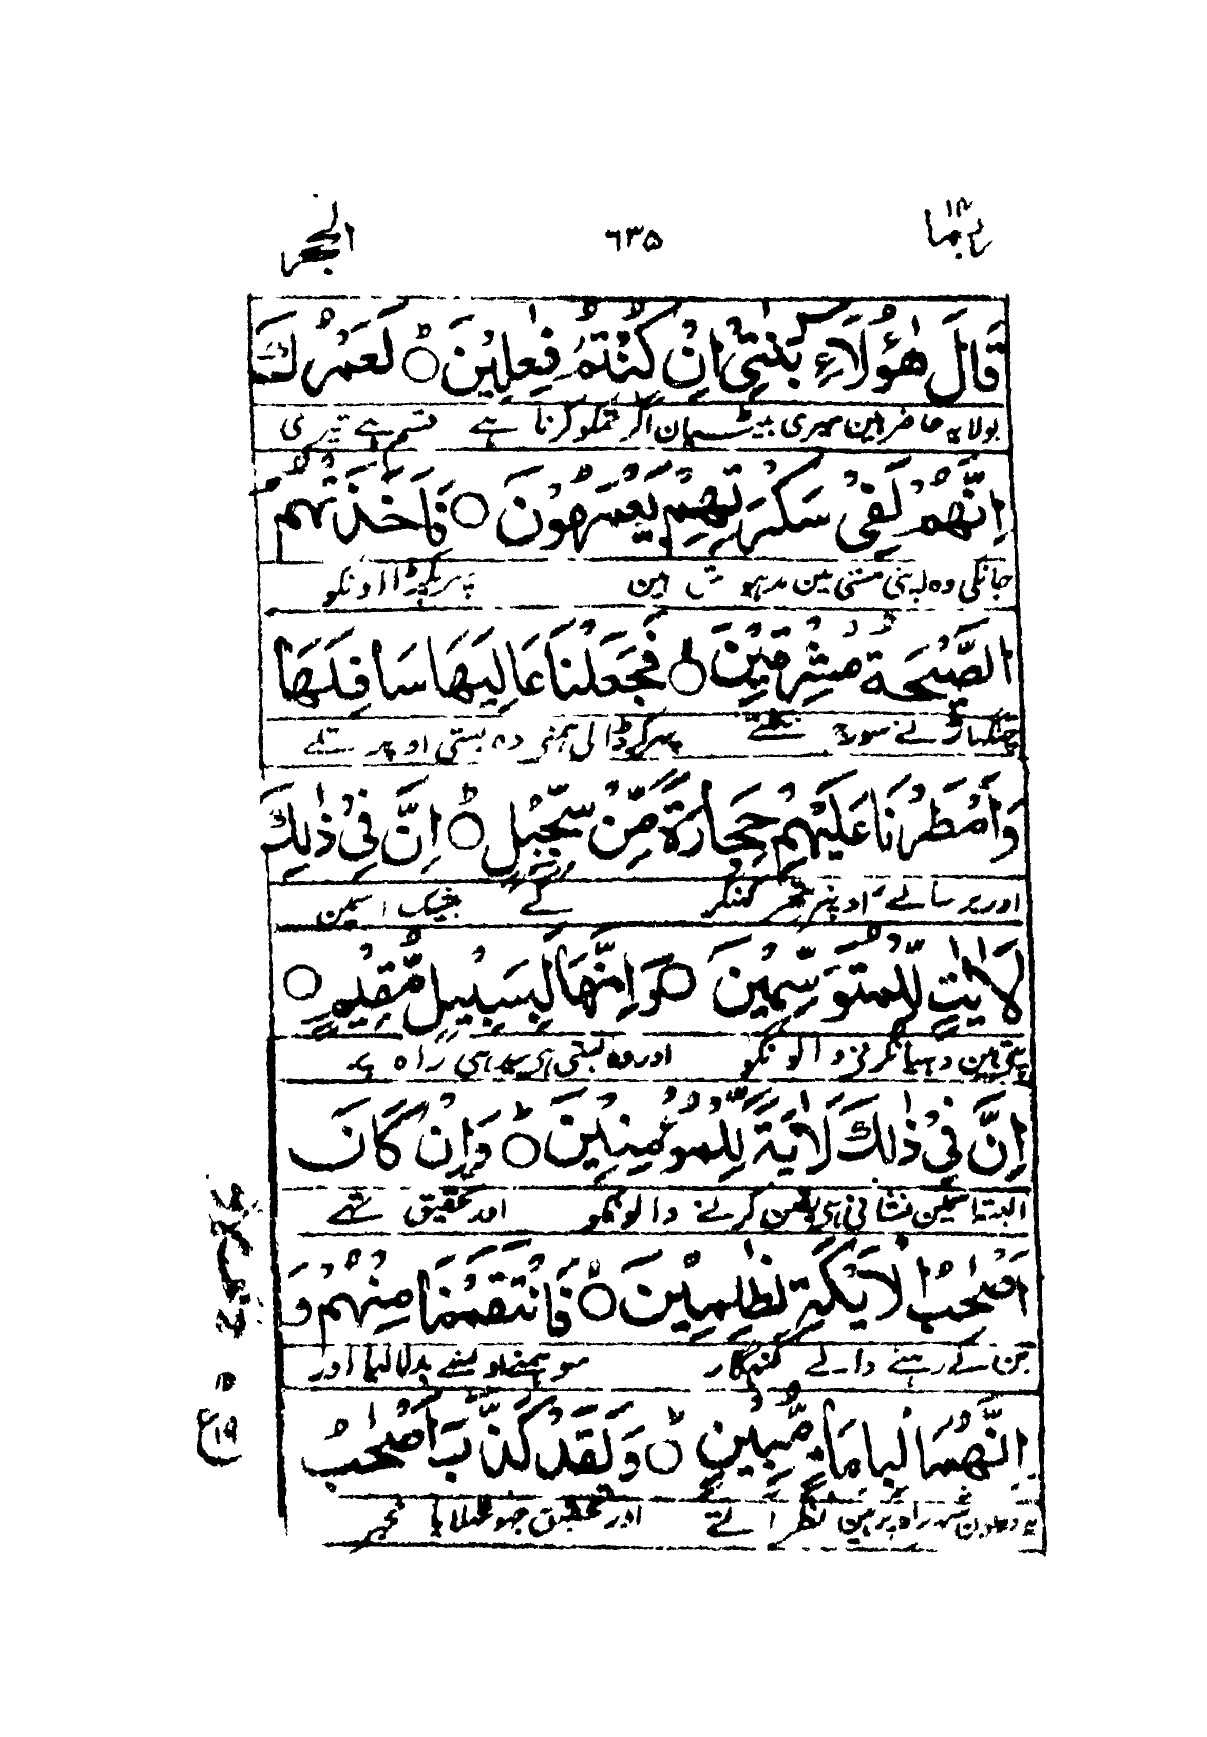 ربما ١٤
٦٣٥
الحجر
قَالَ هٰٓؤُلَآءِ بَنٰتِیْۤ اِنْ كُنْتُمْ فٰعِلِیْنَ ؕ○ لَعَمْرُكَ
بولا یہ حاضر ہین میری بیٹیان اگر تمکو کرنا ہے قسم ہے تیری
اِنَّهُمْ لَفِیْ سَكْرَتِهِمْ یَعْمَهُوْنَ ○ فَاَخَذَتْهُمُ
جانکی وہ اپنی مستی مین مدہوش ہین پہر پکڑا اونکو
الصَّیْحَةُ مُشْرِقِیْنَ ○ فَجَعَلْنَا عَالِیَهَا سَافِلَهَا
چنگہاڑنے سورج نکلتے پہر کر ڈالی ہمنے وہ بستی اوپر تلے
وَاَمْطَرْنَا عَلَیْهِمْ حِجَارَةً مِّنْ سِجِّیْلٍ ؕ○ اِنَّ فِیْ ذٰلِكَ
اور برسائے اونپر پتھر کنکر کے بیشک اسمین
لَاٰیٰتٍ لِّلْمُتَوَسِّمِیْنَ ○ وَاِنَّهَا لَبِسَبِیْلٍ مُّقِیْمٍ ○
پتے ہین دہیان کرنے والونکو اور وہ بستی ہی سیدہی راہ پر
اِنَّ فِیْ ذٰلِكَ لَاٰیَةً لِّلْمُؤْمِنِیْنَ ؕ○ وَاِنْ كَانَ
البتہ اسمین نشانی ہی یقین کرنے والونکو اور تحقیق تہے
اَصْحٰبُ الْاَیْكَةِ لَظٰلِمِیْنَ ○ فَانْتَقَمْنَا مِنْهُمْ وَ
بن کے رہنے والے گنہگار سو ہمنے اونسے بدلا لیا اور
اِنَّهُمَا لَبِاِمَامٍ مُّبِیْنٍ ؕ○ وَلَقَدْ كَذَّبَ اَصْحٰبُ
یہ دونون شہر راہ پر ہین نظر آتے اور تحقیق جھوٹھلایا
١٩ع